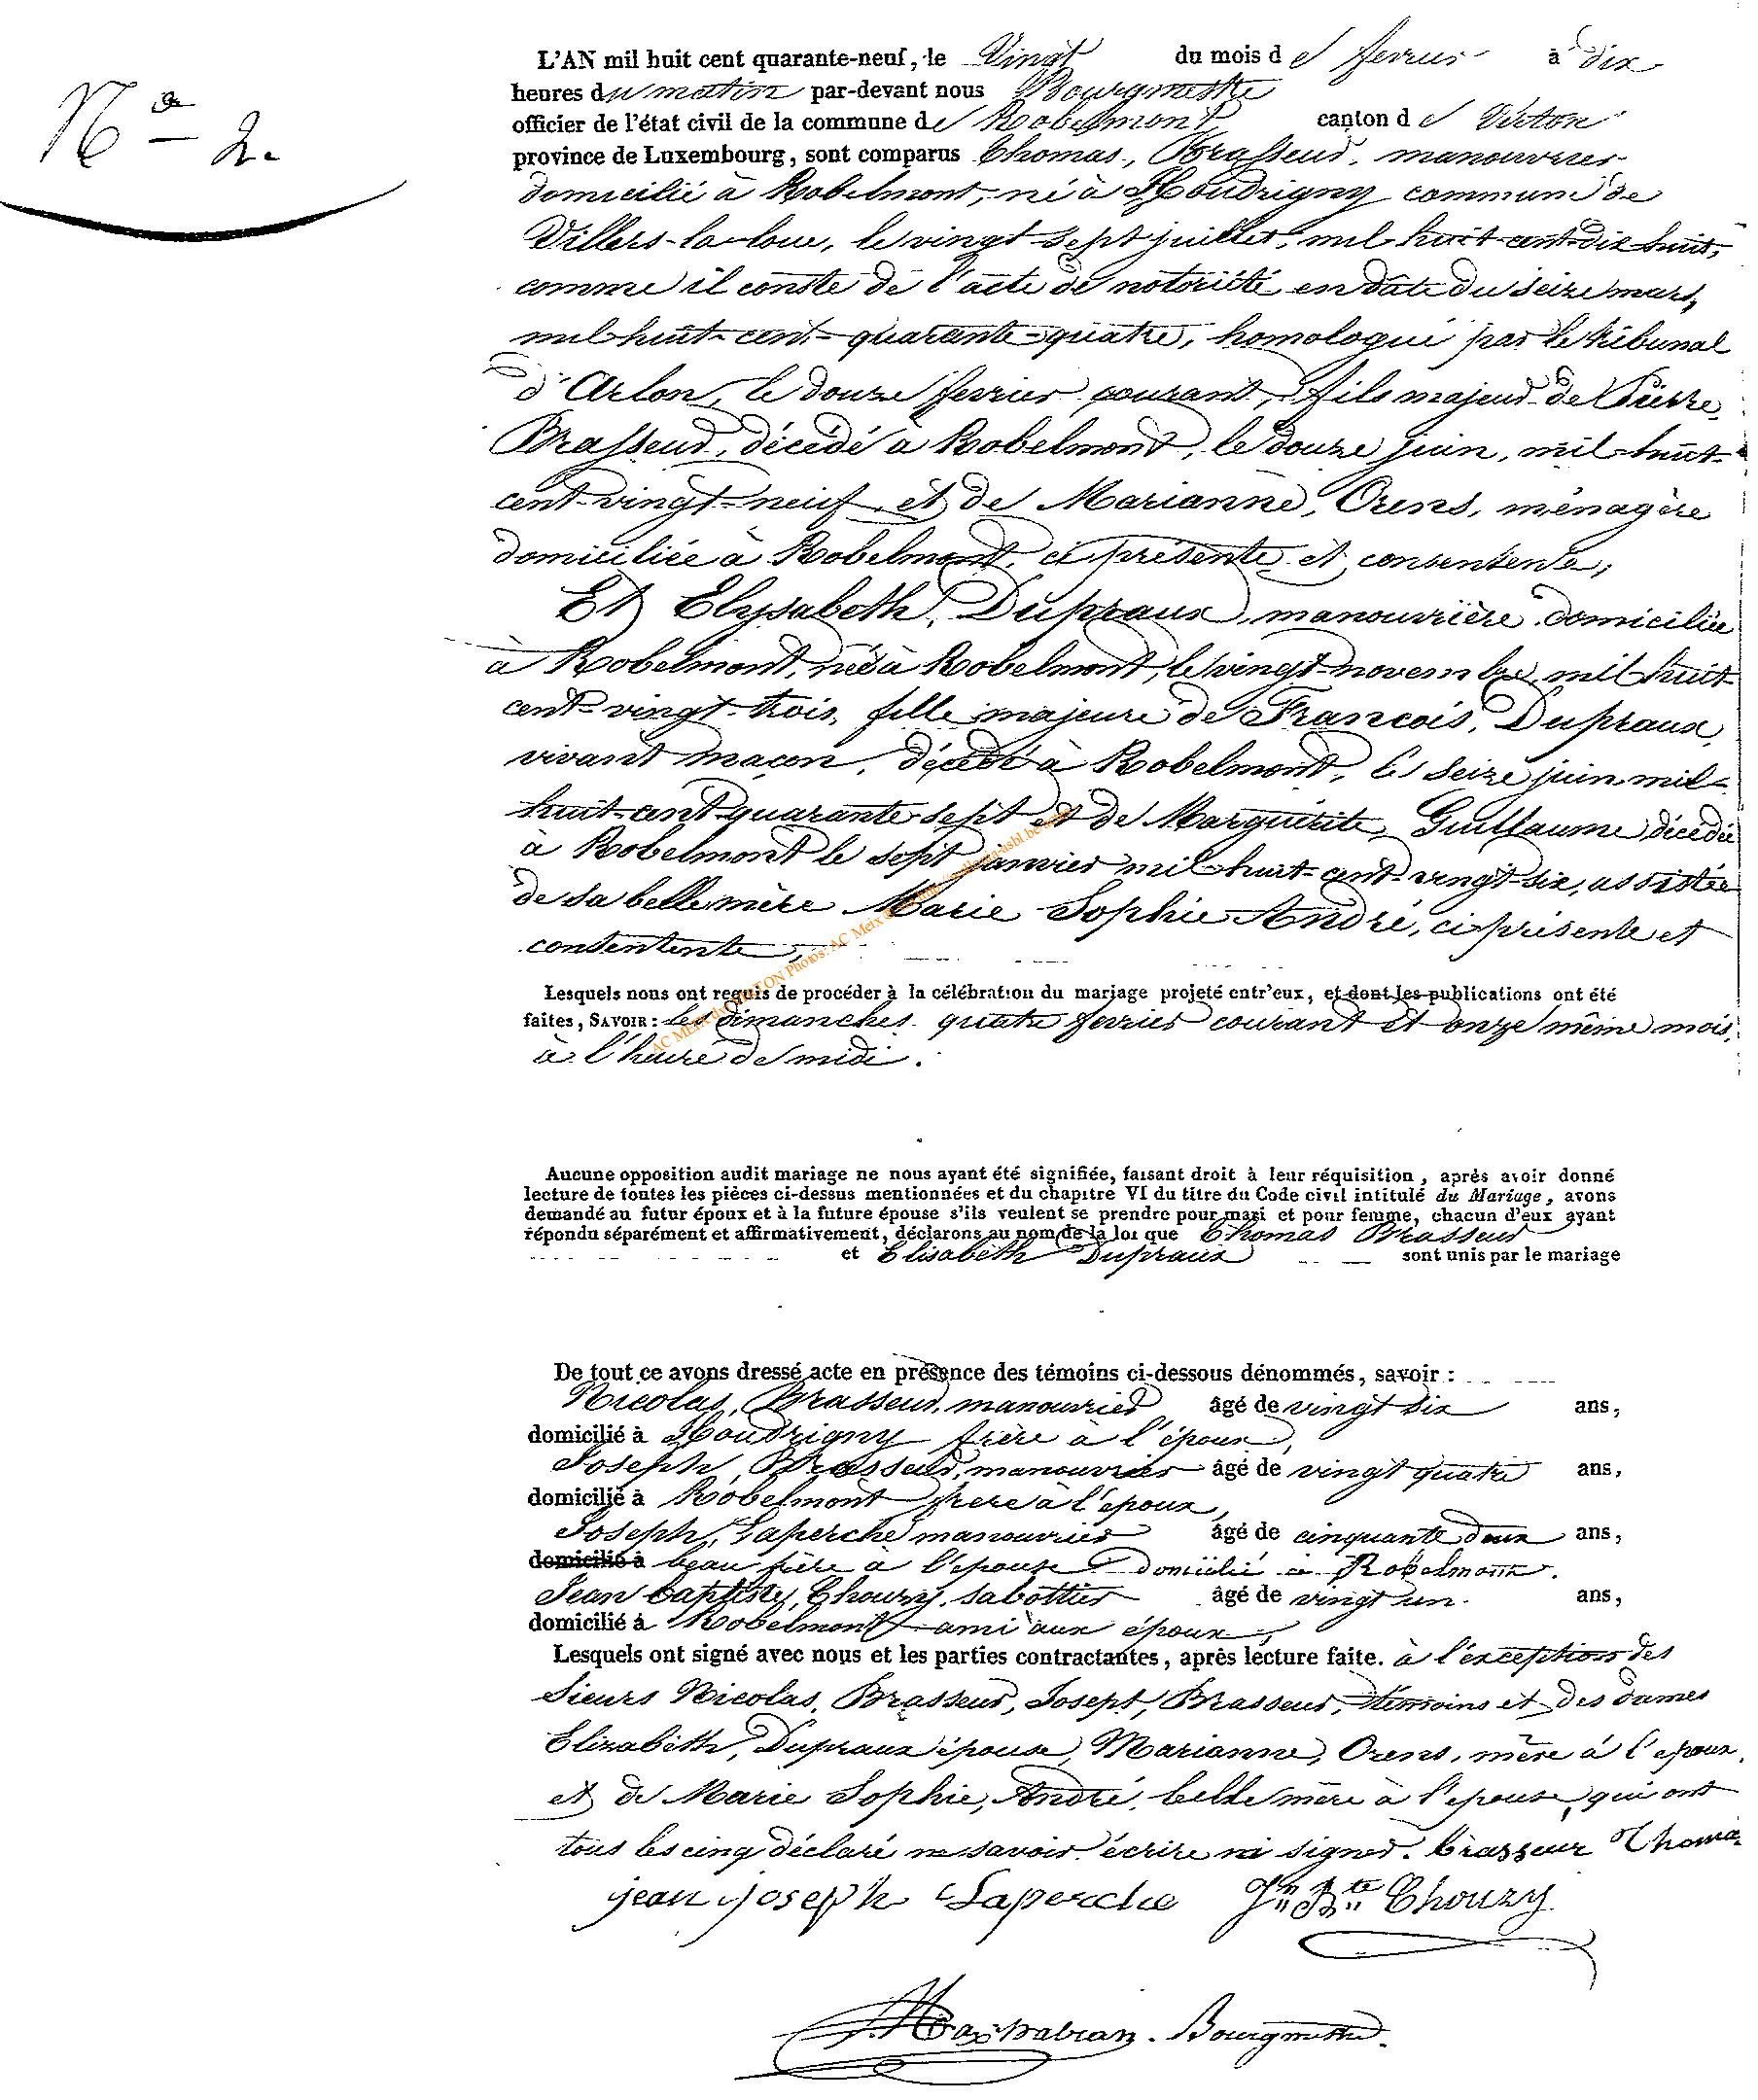 N.º 2.
L'AN mil huit cent quarante-neuf, le Vingt du mois de fevrier à dix
heures du matin par-devant nous Bourgmestre
officier de l'état civil de la commune de Robelmont canton de Virton
province de Luxembourg, sont comparus Thomas, Brasseur, manouvrier
domicilié à Robelmont, né à Houdrigny commune de
Villers-la-loue, le vingt-sept juillet, mil huit-cent-dix huit,
comme il conste de l'acte de notoriété en date du seize mars,
mil-huit-cent-quarante-quatre, homologué par le tribunal
d'Arlon, le douze fevrier courant, fils majeur de Pierre
Brasseur, décédé à Robelmont, le douze juin, mil-huit-
cent-vingt-neuf, et de Marianne, Orens, ménagère
domiciliée à Robelmont, ci présente et consentente,
Et Elysabeth, Dupraux, manouvrière domiciliée
à Robelmont, née à Robelmont, le vingt novembre mil huit-
cent-vingt-trois, fille majeure de François, Dupraux,
vivant maçon, décédé à Robelmont, le seize juin mil-
huit-cent-quarante-sept et de Marguerite, Guillaume décédée
à Robelmont le sept janvier mil-huit-cent-vingt-six, assistée
de sa belle mère Marie Sophie André, ci-présente et
consentente,
Lesquels nous ont requis de procéder à la célébration du mariage projeté entr'eux, et dont les publications ont été
faites, SAVOIR: les dimanches quatre fevrier courant et onze même mois,
à l'heure de midi.
AC MEIX dvt VIRTON Photos: AC Meix
Aucune opposition audit mariage ne nous ayant été signifiée, faisant droit à leur réquisition, après avoir donné
lecture de toutes les pièces ci-dessus mentionnées et du chapitre VI du titre du Code civil intitulé du Mariage, avons
demandé au futur époux et à la future épouse s'ils veulent se prendre pour mari et pour femme, chacun d'eux ayant
répondu séparément et affirmativement, déclarons au nom de la loi que Thomas Brasseur
et Elisabeth Dupraux sont unis par le mariage
De tout ce avons dressé acte en présence des témoins ci-dessous dénommés, savoir:
Nicolas, Brasseur, manouvrier âgé de vingt six ans,
domicilié à Houdrigny frère à l'époux,
Joseph, Brasseur, manouvrier âgé de vingt quatre ans,
domicilié à Robelmont frere à l'epoux,
Joseph, Laperche manouvrier âgé de cinquante deux ans,
domicilié à beau frère à l'épouse domicilié à Robelmont.
Jean baptiste, Thoury, sabottier âgé de vingt un ans,
domicilié à Robelmont ami aux époux,
Lesquels ont signé avec nous et les parties contractantes, après lecture faite. à l'exception des
sieurs Nicolas, Brasseur, Josept, Brasseur, témoins et des dames
Elizabeth, Dupraux épouse, Marianne, Orens, mère à l'epoux,
et de Marie Sophie, André, belle mère à l'epouse, qui ont
tous les cinq déclaré ne savoir écrire ni signer. brasseur Thoma
jean joseph Laperche Jn Bte Thoury
Bourgmestre.